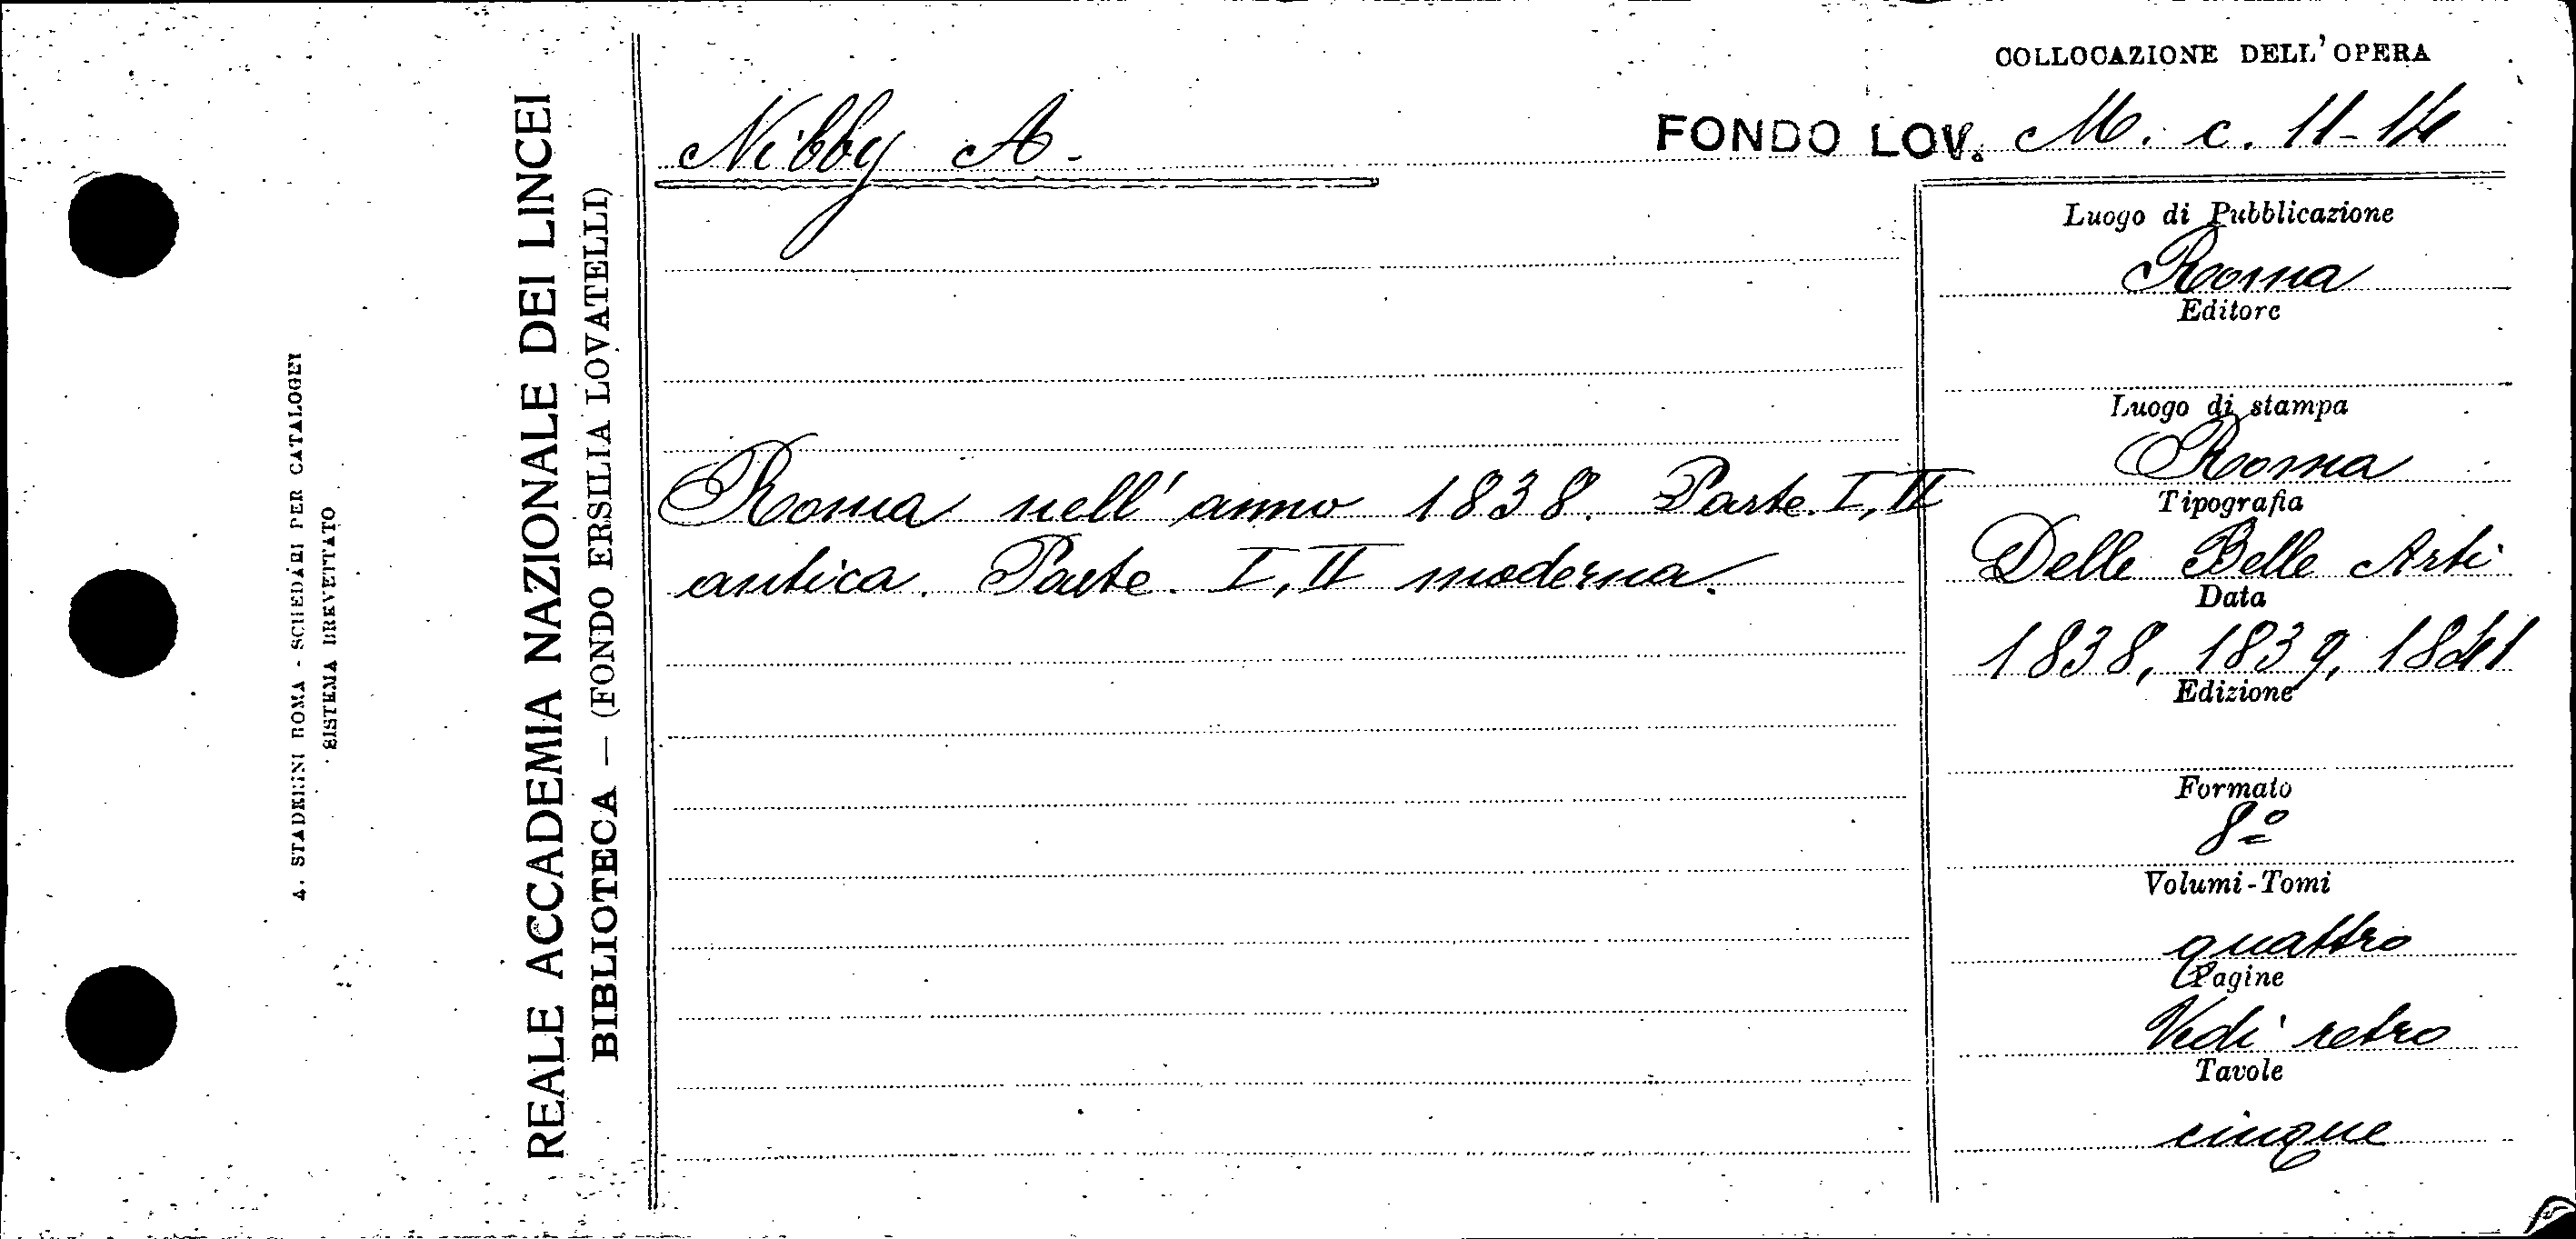 COLLOCAZIONE DELL'OPERA
Nibby A.
FONDO LOV. M. c. 11-14
Roma nell' anno 1838. Parte. I, II
antica. Parte. I, II moderna.
Luogo di Pubblicazione
Roma
Editore
Luogo di stampa
Roma
Tipografia
Delle Belle Arti
Data
1838, 1839, 1841
Edizione
Formato
8º
Volumi-Tomi
quattro
Pagine
Vedi retro
Tavole
cinque
REALE ACCADEMIA NAZIONALE DEI LINCEI
BIBLIOTECA — (FONDO ERSILIA LOVATELLI)
A. STADERINI ROMA - SCHEDARI PER CATALOGHI
SISTEMA BREVETTATO